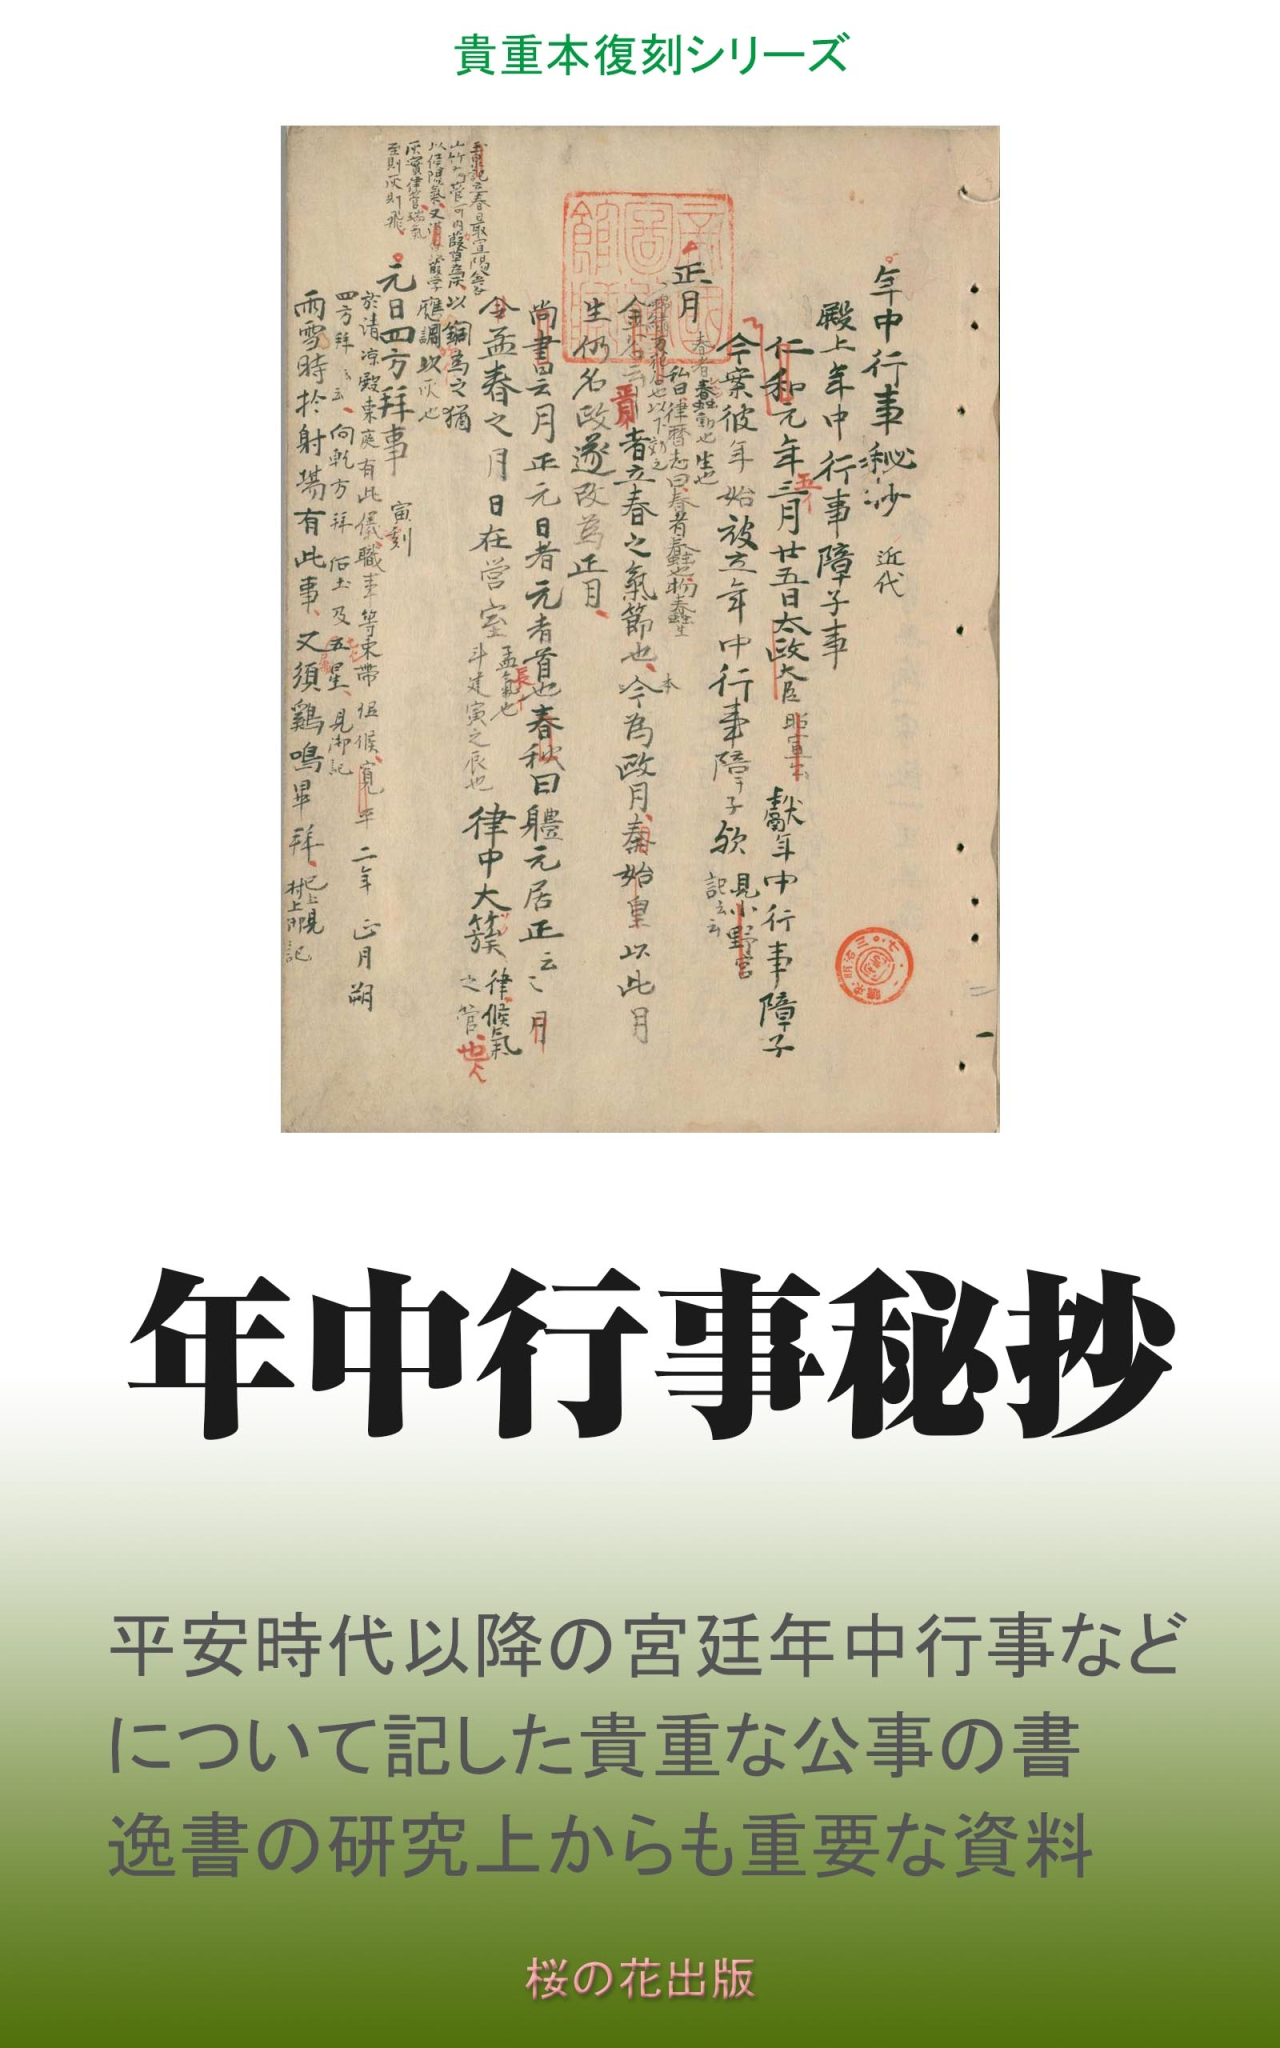 貴重本復刻シリーズ
年中行事秘沙 近代
殿上年中行事障子事
仁和元年三月廿五日太政大臣昭宣公献年中行事障子
今案彼年始被立年中行事障子欤見小野宮記云云
正月
生仍名政遂改為正月
尚書曰云月正元日者元者首也春秋曰體元居正云々月
令孟春之月日在営室
孟氣也
斗建寅之辰也
律中大簇
律候氣
之管
者立春之氣節也今為政月秦始皇以此月
以銅為之猶
應調以灰也
元日四方拜事 寅刻
於清凉殿東庭有此儀職事等束帯伺候寛平二年正月朔
四方拜云云向乾方拜后土及五星見御記
雨雪時於射場有此事又須鷄鳴畢拜
年中行事秘抄
平安時代以降の宮廷年中行事など
について記した貴重な公事の書
逸書の研究上からも重要な資料
桜の花出版